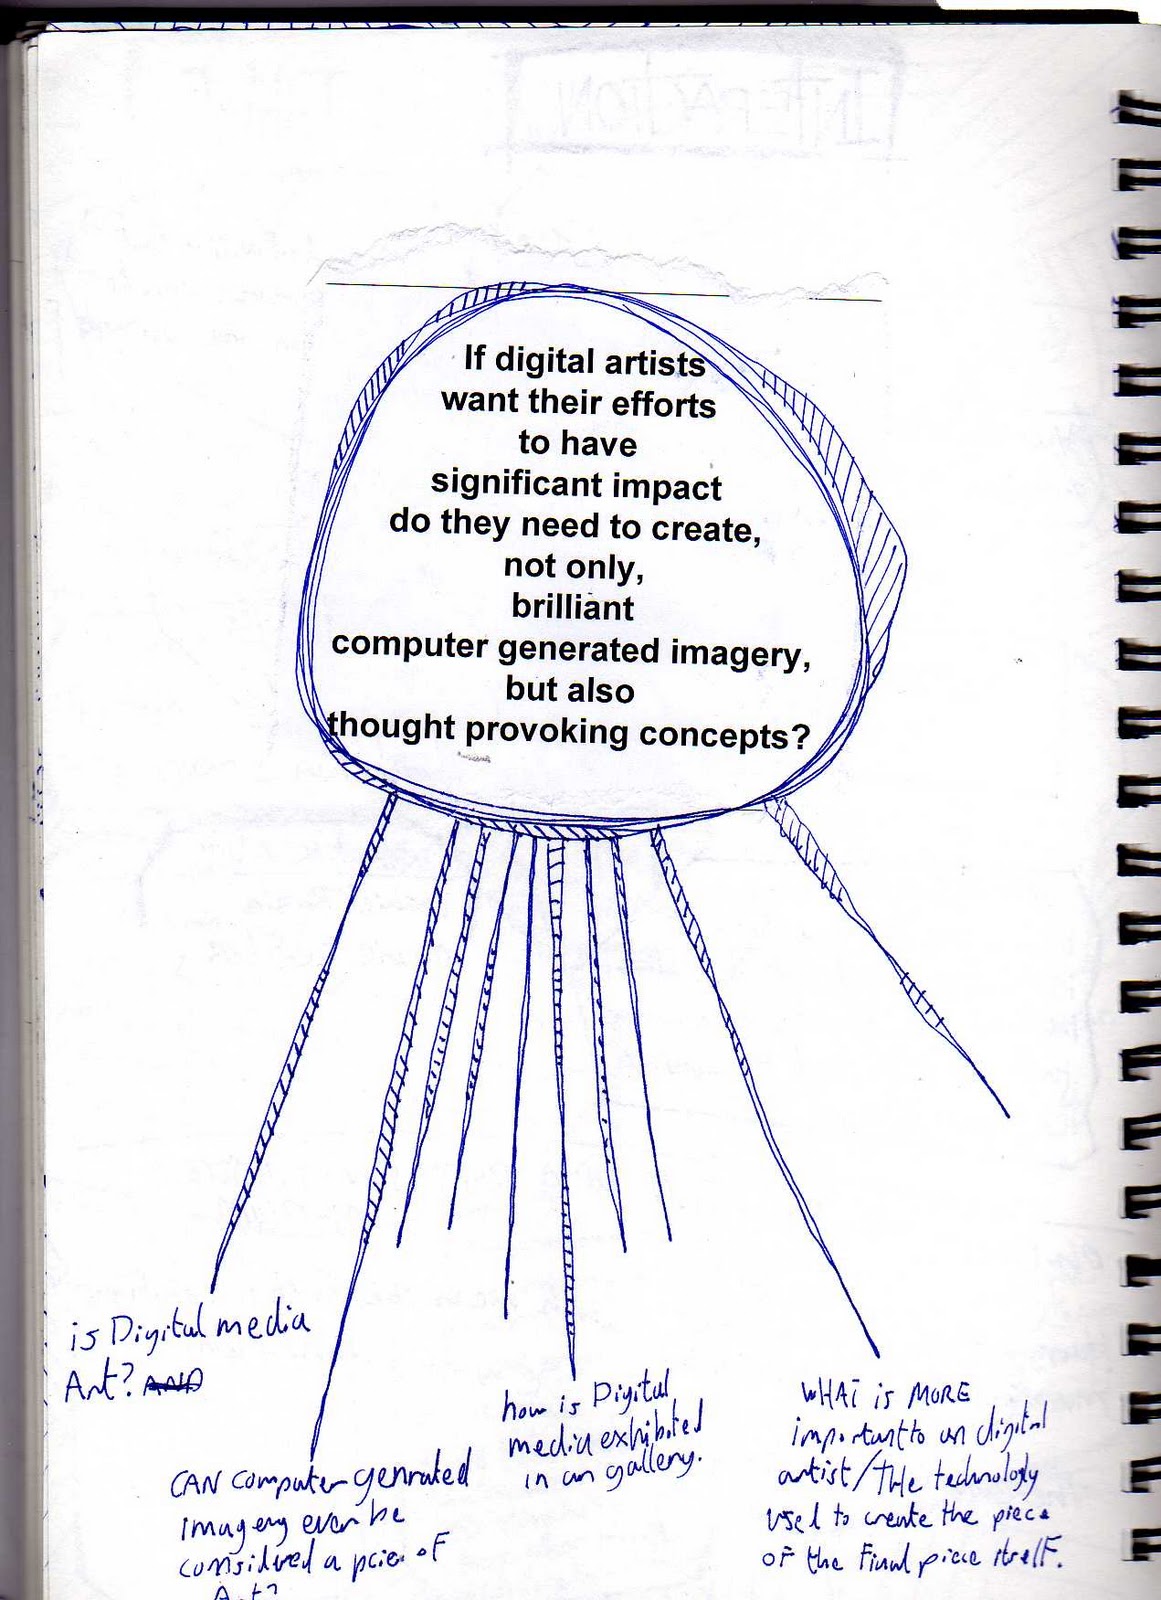 INTERACTION
If digital artists
want their efforts
to have
significant impact
do they need to create,
not only,
brilliant
computer generated imagery,
but also
thought provoking concepts?
is Digital media
Art? AND
CAN Computer genrated
imagery ever be
considered a pcie of
Art?
how is Digital
media exhibited
in an gallery.
WHAT is MORE
important to an digital
artist/THe technology
used to create the piece
of the Final piece itself.